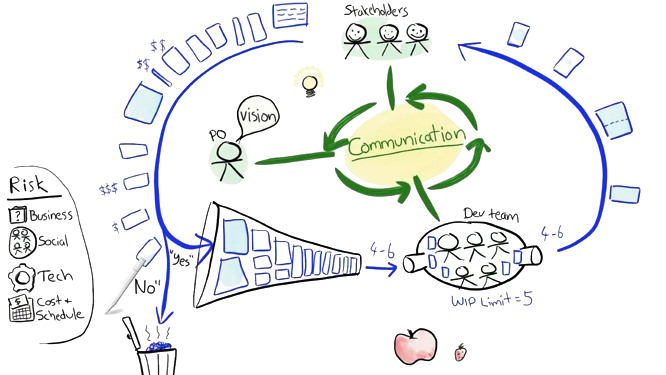 Stakeholders
$$
$$
PO
vision
Communication
$$$
$
Risk
?
Business
Social
Tech
$
Cost +
Schedule
"Yes"
No"
4-6
Dev team
4-6
WIP Limit = 5